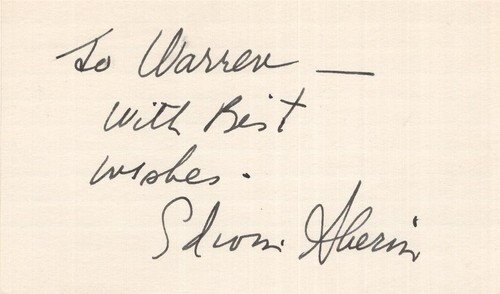 To Warren —
With Best
wishes.
Edwin Sherin